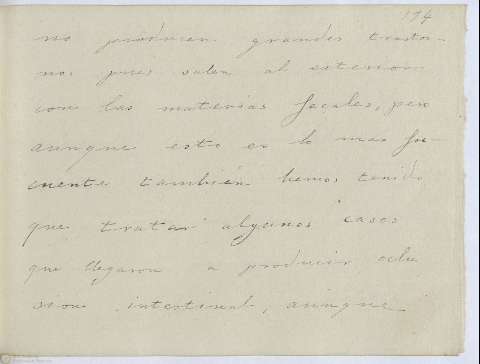 194
no producen grandes trastor-
nos pues salen al exterior
con las materias fecales, pero
aunque esto es lo mas fre-
cuente tambien hemos tenido
que tratar algunos casos
que llegaron a producir oclu
sion intestinal, aunque